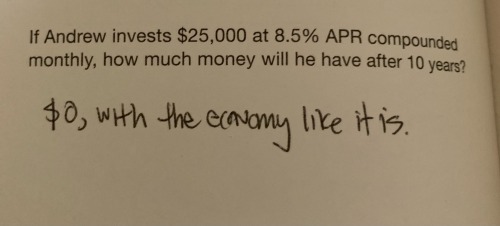 If Andrew invests $25,000 at 8.5% APR compounded
monthly, how much money will he have after 10 years?
$0, with the economy like it is.